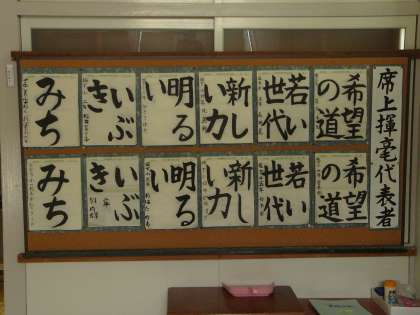 席上揮毫代表者
希望の道
若い世代
新しい力
明るい
いぶき
みち
希望の道
若い世代
新しい力
明るい
いぶき
みち